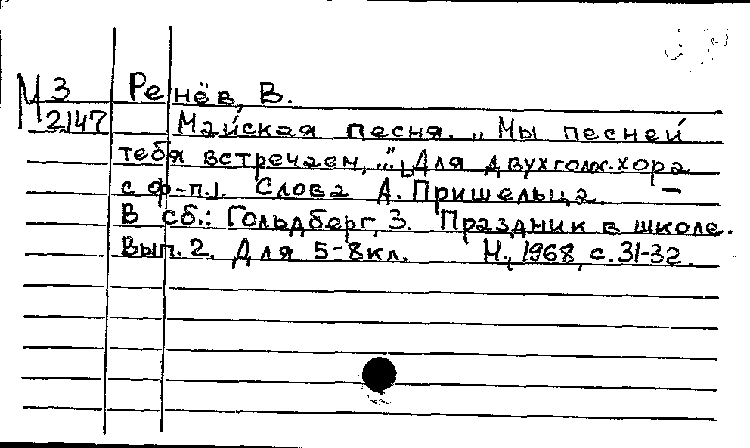 М 3 Ренёв, В.
2147 Майская песня. „Мы песней
тебя встречаем,..." [Для двухголос. хора
с ф-п.]. Слова А. Пришельца. —
В сб.: Гольдберг, З. Праздник в школе.
Вып. 2. Для 5-8 кл. М., 1968, с. 31-32.